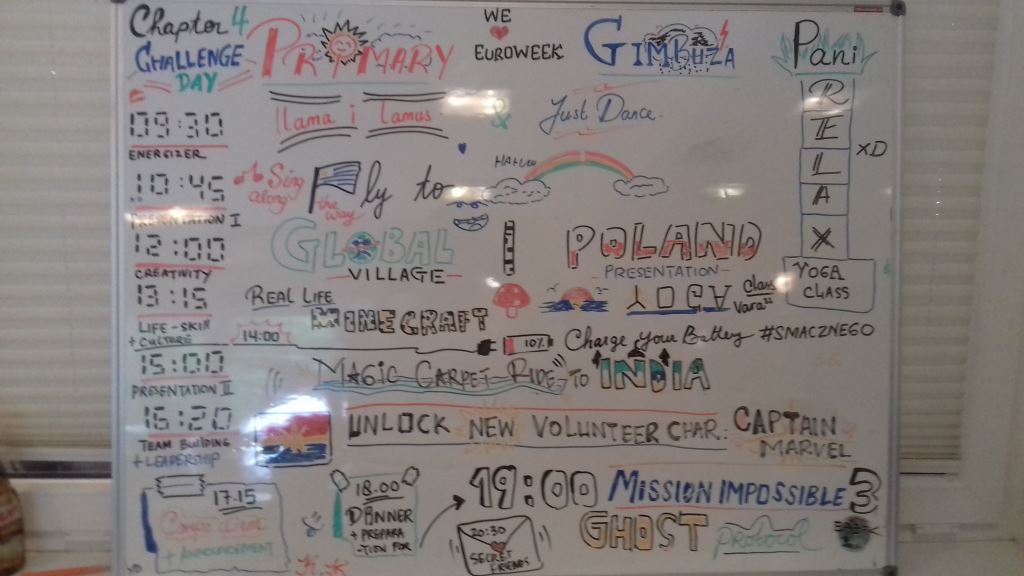 Chapter 4
CHALLENGE
DAY
PRYMARY
WE
EUROWEEK
GIMBUZA
Pani
R
E
L
A
X
xD
YOGA
CLASS
09:30
ENERGIZER
llama i lamus
&
Just Dance.
10:45
PRESENTATION I
Sing
Along
the way
Fly to
12:00
CREATIVITY
GLOBAL
VILLAGE
POLAND
PRESENTATION
13:15
LIFE-SKILL
+ CULTURE
14:00
REAL LIFE
MINECRAFT
YOGA
class
10%
Charge your Battery #SMACZNEGO
15:00
PRESENTATION II
MAGIC CARPET RIDE TO INDIA
16:20
TEAM BUILDING
+ LEADERSHIP
UNLOCK NEW VOLUNTEER CHAR.:
CAPTAIN
MARVEL
17.15
+ ANNOUNCEMENT
18.00
DINNER
+ PREPARA
-TION FOR
19:00
MISSION IMPOSSIBLE 3
GHOST protocol
20:30
SECRET
FRIENDS
K.K